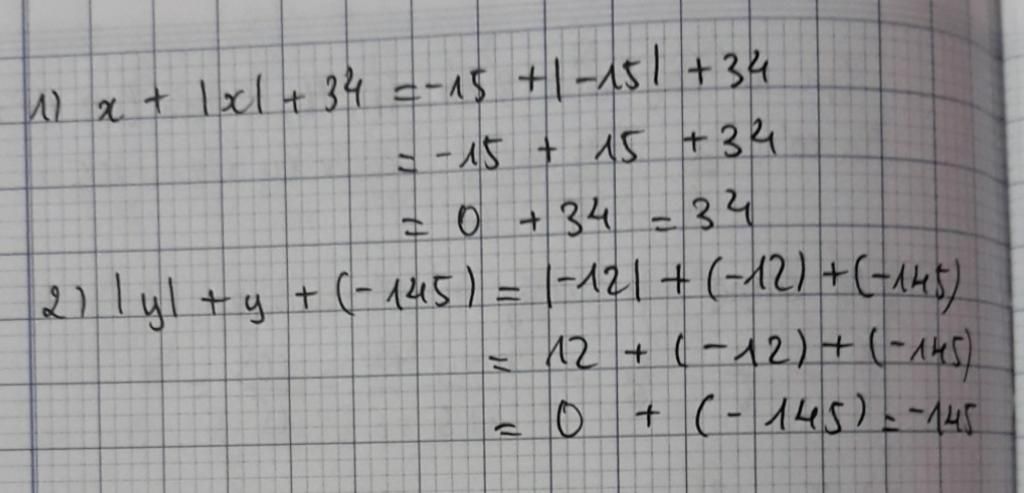 1) x + |x| + 34 = -15 + |-15| + 34
= -15 + 15 + 34
= 0 + 34 = 34
2) |y| + y + (-145) = |-12| + (-12) + (-145)
= 12 + (-12) + (-145)
= 0 + (-145) = -145